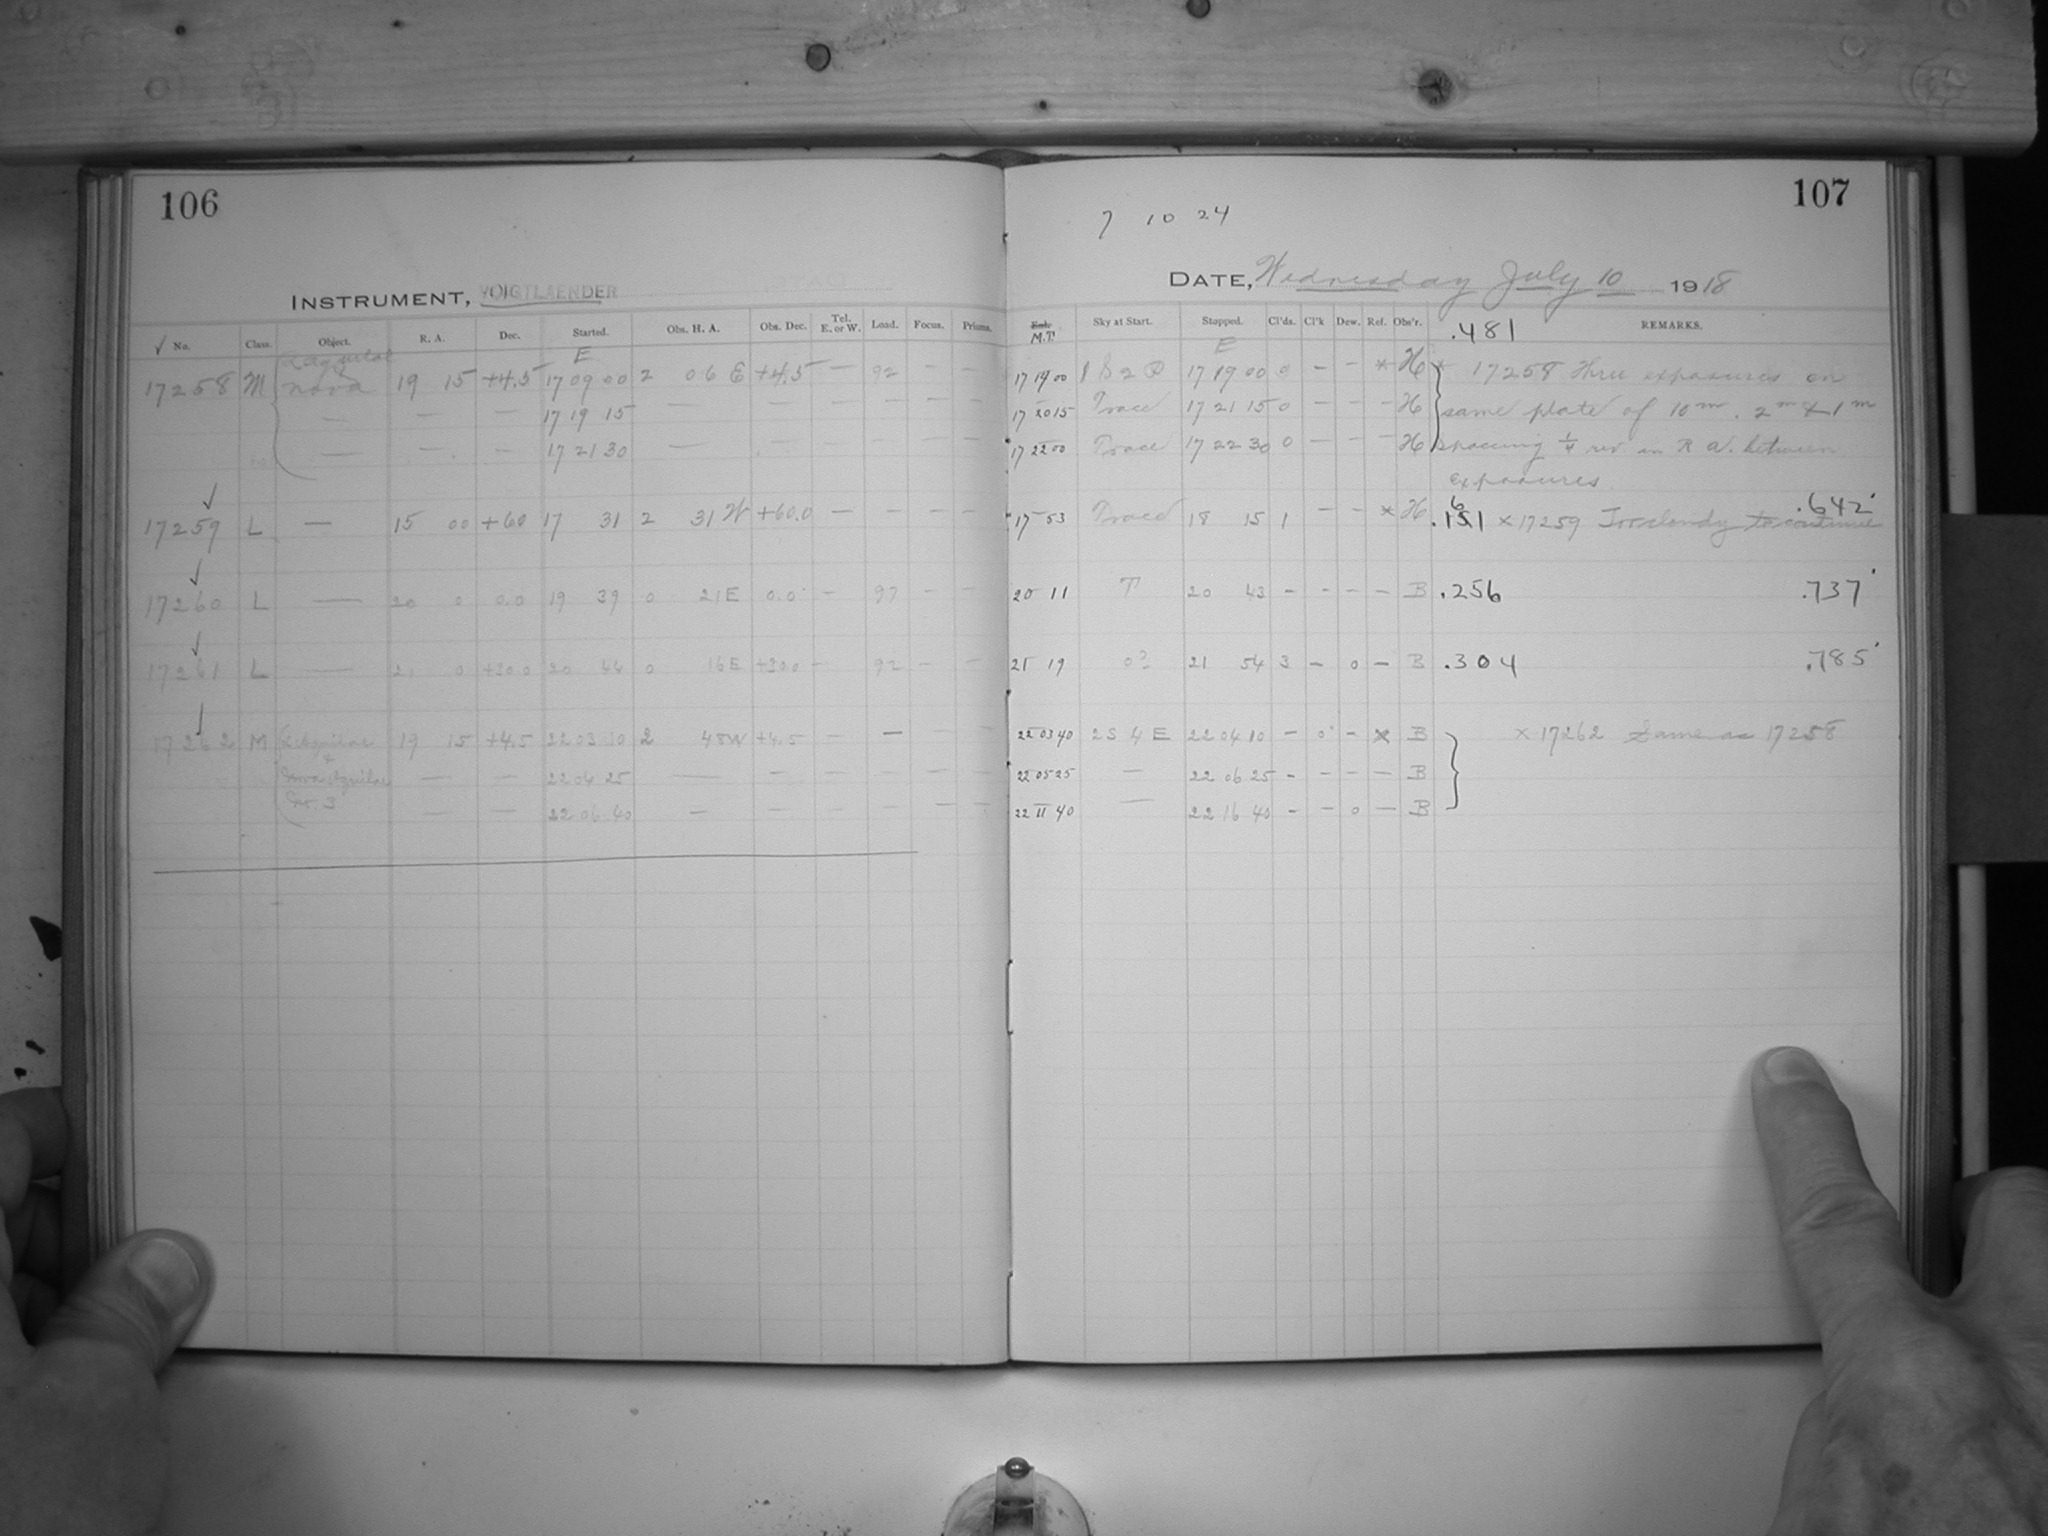 106
INSTRUMENT, VOIGTLAENDER
✓ No. Class. Object. R. A. Dec. Started. Obs. H. A. Obs. Dec. Tel. E. or W. Load. Focus. Prisms.
E
17258 M Nova 19 15 +4.5 17 09 00 2 06 E +4.5 — 92 — —
— — — 17 19 15 — — — — — —
— — 17 21 30 — — — — — —
✓
17259 L — 15 00 +60 17 31 2 31 W +60.0 — — — —
✓
17260 L — 20 0 0.0 19 39 0 21 E 0.0 — 97 — —
✓
17261 L — 21 0 +30.0 20 44 0 16 E +30.0 — 92 — —
✓
17262 M 19 15 +4.5 22 03 10 2 48 W +4.5 — — — —
&
Nova Aquilae — — 22 04 25 — — — — — —
No. 3 — — 22 06 40 — — — — — —
107
7 10 24
DATE, Wednesday July 10 1918
Exp. M.T. Sky at Start. Stopped. Cl'ds. Cl'k Dew. Ref. Obs'r. .481 REMARKS.
E
17 14 00 17 19 00 0 — — * H * 17258 Three exposures on
17 20 15 17 21 15 0 — — — H same plate of 10m. 2m & 1m
17 22 00 17 22 30 0 — — — H spacing ¼ rev. in R A. between
exposures.
17 53 18 15 1 — — * H × 17259 Too cloudy to continue .642
20 11 T 20 43 — — — — B .256 .737
21 19 0? 21 54 3 — 0 — B .304 .785
22 03 40 2S 4 E 22 04 10 — 0 — × B × 17262 Same as 17258
22 05 25 — 22 06 25 — — — — B
22 11 40 — 22 16 40 — — 0 — B